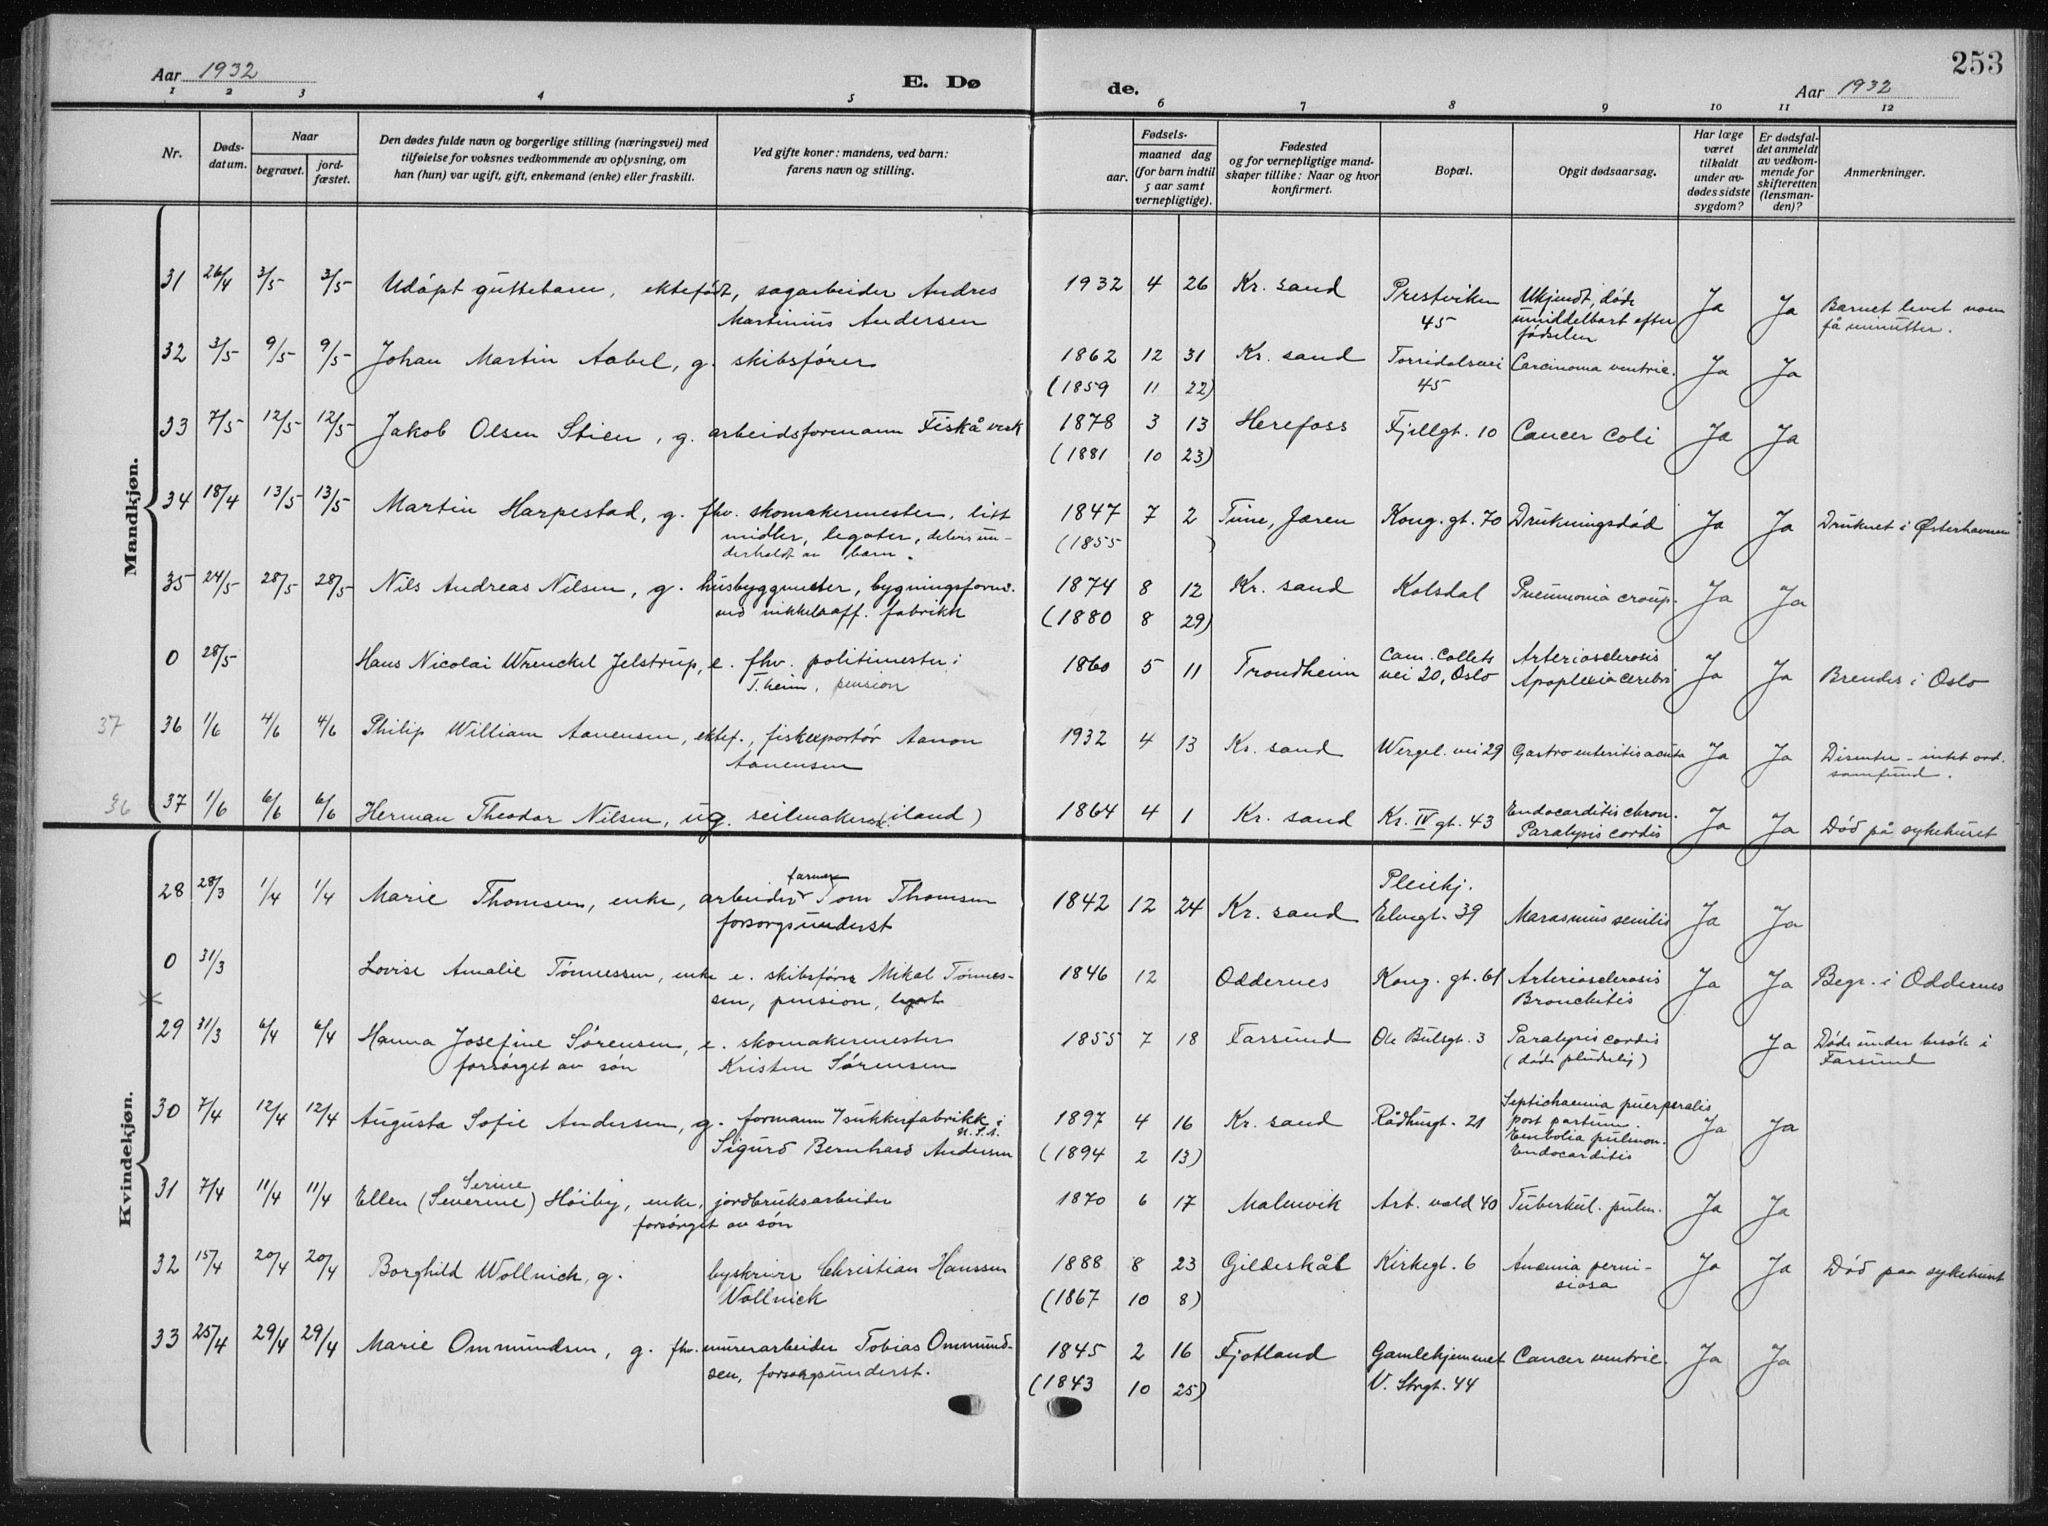 253
Aar 1932
E. Dø
de.
Aar 1932
1 2 3 4 5 6 7 8 9 10 11 12
Nr.
Døds-
datum.
Naar
begravet.
jord-
fæstet.
Den dødes fulde navn og borgerlige stilling (næringsvei) med
tilføielse for voksnes vedkommende av oplysning, om
han (hun) var ugift, gift, enkemand (enke) eller fraskilt.
Ved gifte koner: mandens, ved barn:
farens navn og stilling.
Fødsels-
aar.
maaned dag
(for barn indtil
5 aar samt
vernepligtige).
Fødested
og for vernepligtige mand-
skaper tillike: Naar og hvor
konfirmert.
Bopæl.
Opgit dødsaarsag.
Har læge
været
tilkaldt
under av-
dødes sidste
sygdom?
Er dødsfal-
det anmeldt
av vedkom-
mende for
skifteretten
(lensman-
den)?
Anmerkninger.
Mandkjøn.
31 26/4 3/5 3/5 Udøpt guttebarn, ektefødt, sagarbeider Andres 1932 4 26 Kr. sand Prestviken Ukjendt, døde Ja Ja Barnet levet noen
Martinius Andersen 45 umiddelbart efter få minutter.
fødselen
32 3/5 9/5 9/5 Johan Martin Aabel, g. skibsfører 1862 12 31 Kr. sand Torridalsvei Carcinoma ventric. Ja Ja
(1859 11 22) 45
33 7/5 12/5 12/5 Jakob Olsen Stien, g. arbeidsformann Fiskå verk 1878 3 13 Herefoss Fjellgt. 10 Cancer coli Ja Ja
(1881 10 23)
34 18/4 13/5 13/5 Martin Harpestad, g. fhv. skomakermester, litt 1847 7 2 Time, Jæren Kong. gt. 70 Drukningsdød Ja Ja Druknet i Østerhavnen
midler, legater, delvis un- (1855 )
derholdt av barn.
35 24/5 28/5 28/5 Nils Andreas Nilsen, g. husbyggmester, bygningsform. 1874 8 12 Kr. sand Kolsdal Pneumonia croup. Ja Ja
ved nikkelraff. fabrikk (1880 8 29)
0 28/5 Hans Nicolai Wrenckel Jelstrup, e. fhv. politimester i 1860 5 11 Trondheim Cam. Collets Arteriosclerosis Ja Ja Brendes i Oslo
T.heim, pension vei 20, Oslo Apoplexia cerebri
37 36 1/6 4/6 4/6 Philip William Aanensen, ektef., fiskexportør Aanon 1932 4 13 Kr. sand Wergel. vei 29 Gastroenteritis acuta Ja Ja Disenter - intet ord.
Aanensen samfund.
36 37 1/6 6/6 6/6 Herman Theodor Nilsen, ug. seilmaker iland) 1864 4 1 Kr. sand Kr. IV gt. 43 Endocarditis chron. Ja Ja Død på sykehuset
Paralysis cordis
Kvindekjøn.
28 28/3 1/4 1/4 Marie Thomsen, enke, arbeider Tom Thomsen 1842 12 24 Kr. sand Pleiehj. Marasmus senilis Ja Ja
forsorgsunderst Elvegt. 39
0 31/3 Lovise Amalie Tønnessen, enke e. skibsfører Mikal Tønnes- 1846 12 Oddernes Kong. gt. 61 Arteriosclerosis Ja Ja Begr. i Oddernes
sen, pension, legat Bronchitis
29 31/3 6/4 6/4 Hanna Josefine Sørensen, e. skomakermester 1855 7 18 Farsund Ole Bulsgt. 3 Paralysis cordis Ja Døde under besøk i
forsørget av søn Kristen Sørensen (døde pludselig) Farsund
30 7/4 12/4 12/4 Augusta Sofie Andersen, g. formann i sukkerfabrikk i 1897 4 16 Kr. sand Rådhusgt. 21 Septichaemia puerperalis Ja Ja
U.S.A. post partum.
Sigurd Bernhard Andersen (1894 2 13) Embolia pulmon.
Endocarditis
31 7/4 11/4 11/4 Ellen (Severine) Serine Høiby, enke, jordbruksarbeider 1870 6 17 Malmvik Art. vold 40 Tuberkul. pulm. Ja Ja
forsørget av søn
32 15/4 20/4 20/4 Borghild Wollnick, g. byskriver Christian Hanssen 1888 8 23 Gildeskål Kirkegt. 6 Anæmia perni- Ja Ja Død paa sykehuset
Wollnick (1867 10 8) siosa
33 25/4 29/4 29/4 Marie Ommundsen, g. fhv. murerarbeider Tobias Ommund- 1845 2 16 Fjotland Gamlehjemmet Cancer ventric. Ja Ja
sen, forsorgsunderst. (1843 10 25) V. Strgt. 44